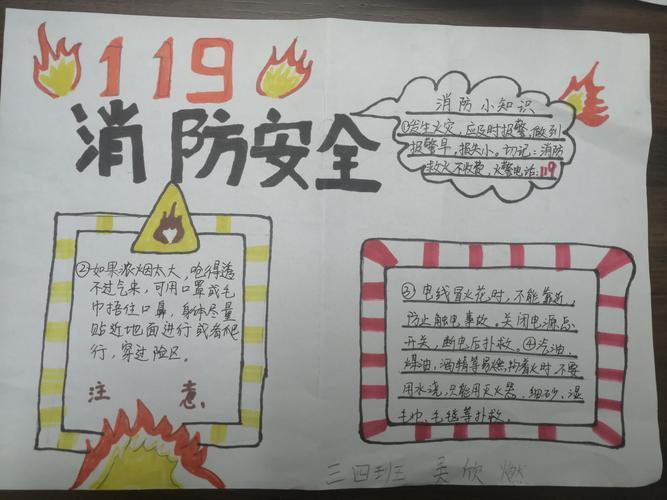 119
消防安全
消防小知识
①发生火灾，应及时报警，做到
报警早。损失小。切记：消防
救火不收费，火警电话：119
②如果浓烟太大，呛得透
不过气来，可用口罩或毛
巾捂住口鼻，身体尽量
贴近地面进行或者爬
行，穿过险区。
注意
③电线冒火花时，不能靠近，
防止触电事故。关闭电源总
开关，断电后扑救。④汽油、
煤油、酒精等易燃物着火时，不要
用水浇，只能用灭火器、细砂、湿
毛巾、毛毯等扑救
三四班 吴欣燃